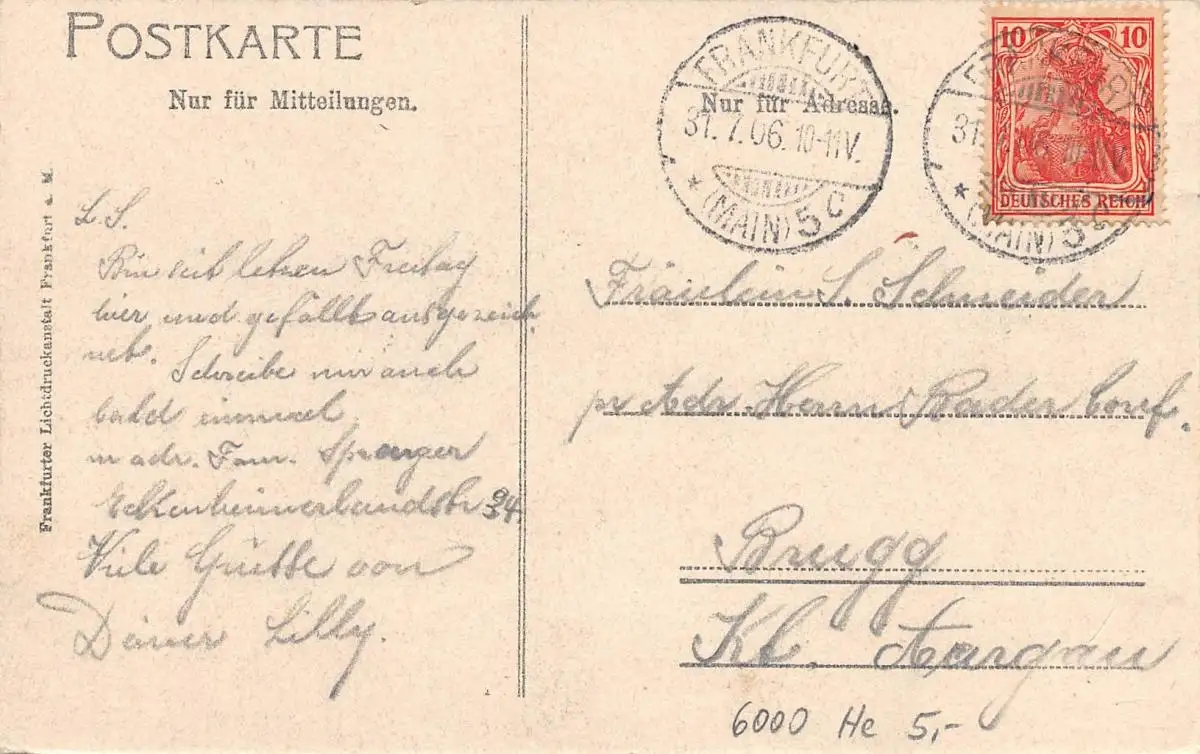 POSTKARTE
Nur für Mitteilungen.
Nur für Adresse.
FRANKFURT
31.7.06.10-11V.
(MAIN) 5 C
10 10
DEUTSCHES REICH
FRANKFURT
31.7.06.10-11V.
(MAIN) 5 C
Frankfurter Lichtdruckanstalt Frankfurt a. M.
L. S.
Bin seit letzen Freitag
hier und gefällts ausgezeich
net. Schreibe mir auch
bald einmal
adr. Fam. Sprenger
Eckenheimerlandstr 34.
Viele Grüsse von
Deiner Lilly.
Fräulein S. Schneider
pr Adr Herrn Bader Conf.
Brugg
Kt. Aargau
6000 He 5,-